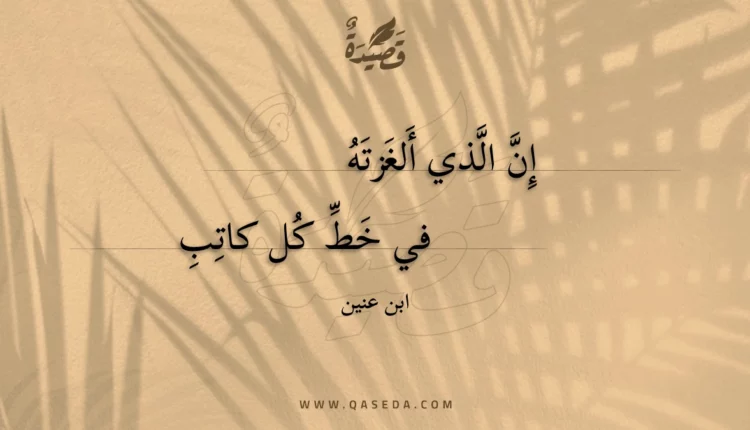 قَصِيدَةٌ
إِنَّ الَّذي أَلغَزتَهُ
في خَطِّ كُل كاتِبِ
ابن عنين
WWW.QASEDA.COM